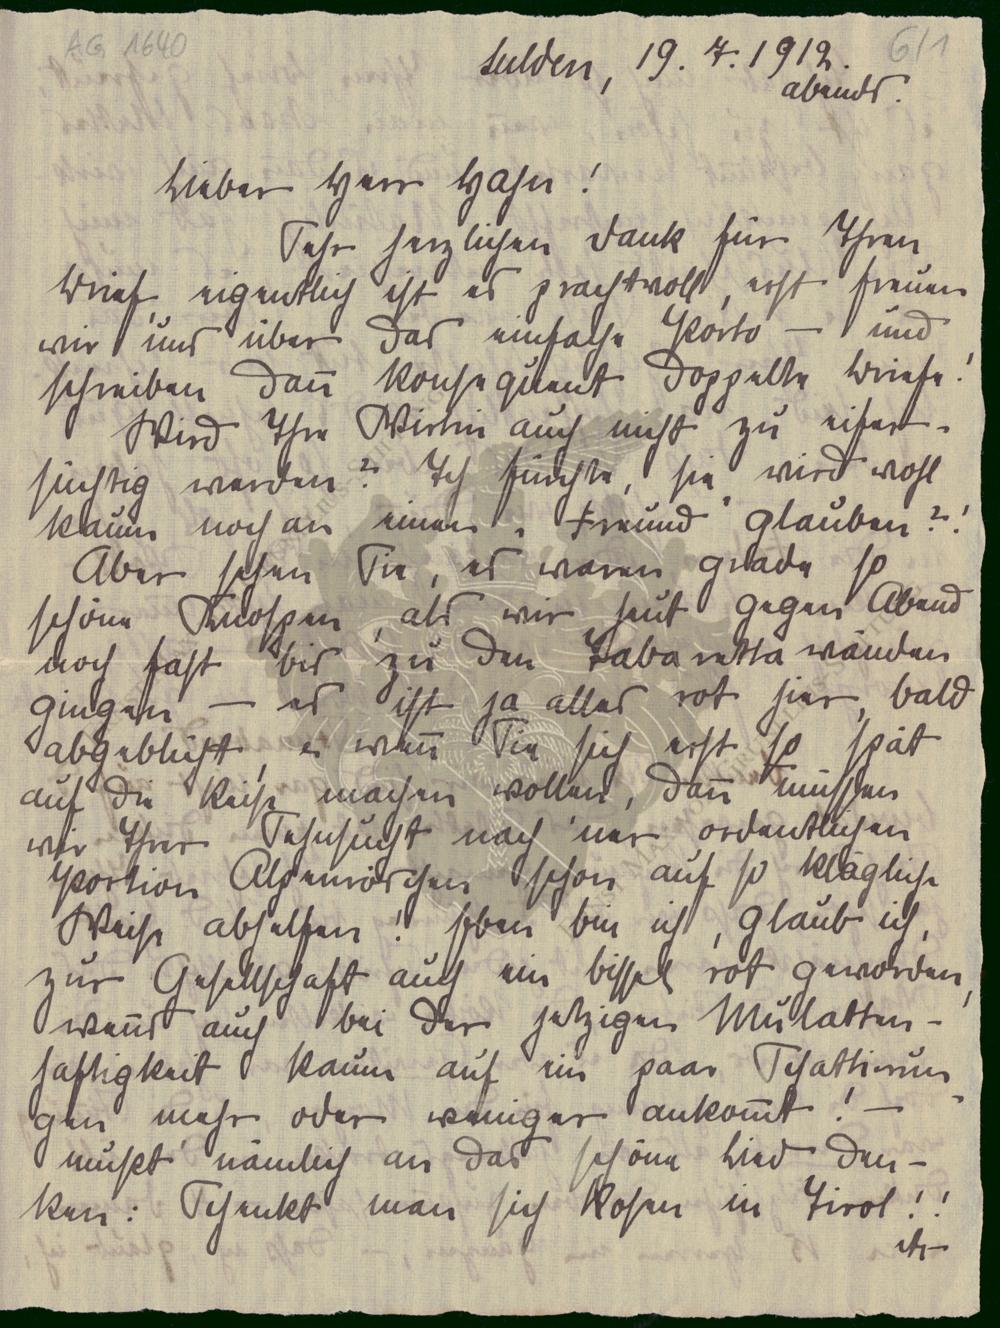 AG 1640
6/1
Sulden, 19. 7. 1912.
abends.
Lieber Herr Hahn!
Sehr herzlichen Dank für Ihren
Brief, eigentlich ist es prachtvoll, erst freuen
wir uns über das einfache Porto — und
schreiben dan̄ konsequent doppelte Briefe!
Wird Ihre Wirtin auch nicht zu eifer-
süchtig werden? Ich fürchte, sie wird wohl
kaum noch an einen „Freund“ glauben?!
Aber sehen Sie, es waren grade so
schöne Knospen, als wir heut gegen Abend
noch fast bis zu den Tabarettawänden
gingen — es ist ja alles rot hier, bald
abgeblüht, u wen̄ Sie sich erst so spät
auf die Reise machen wollen, dan̄ müssen
wir Ihrer Sehnsucht nach 'ner ordentlichen
Portion Alpenröschen schon auf so klägliche
Weise abhelfen! Eben bin ich, glaub ich,
zur Gesellschaft auch ein bissel rot geworden,
wen̄s auch bei der jetzigen Mulatten-
haftigkeit kaum auf ein paar Schattierun-
gen mehr oder weniger ankom̄t! —
mußt nämlich an das schöne Lied den-
ken: Schenkt man sich Rosen in Tirol!!